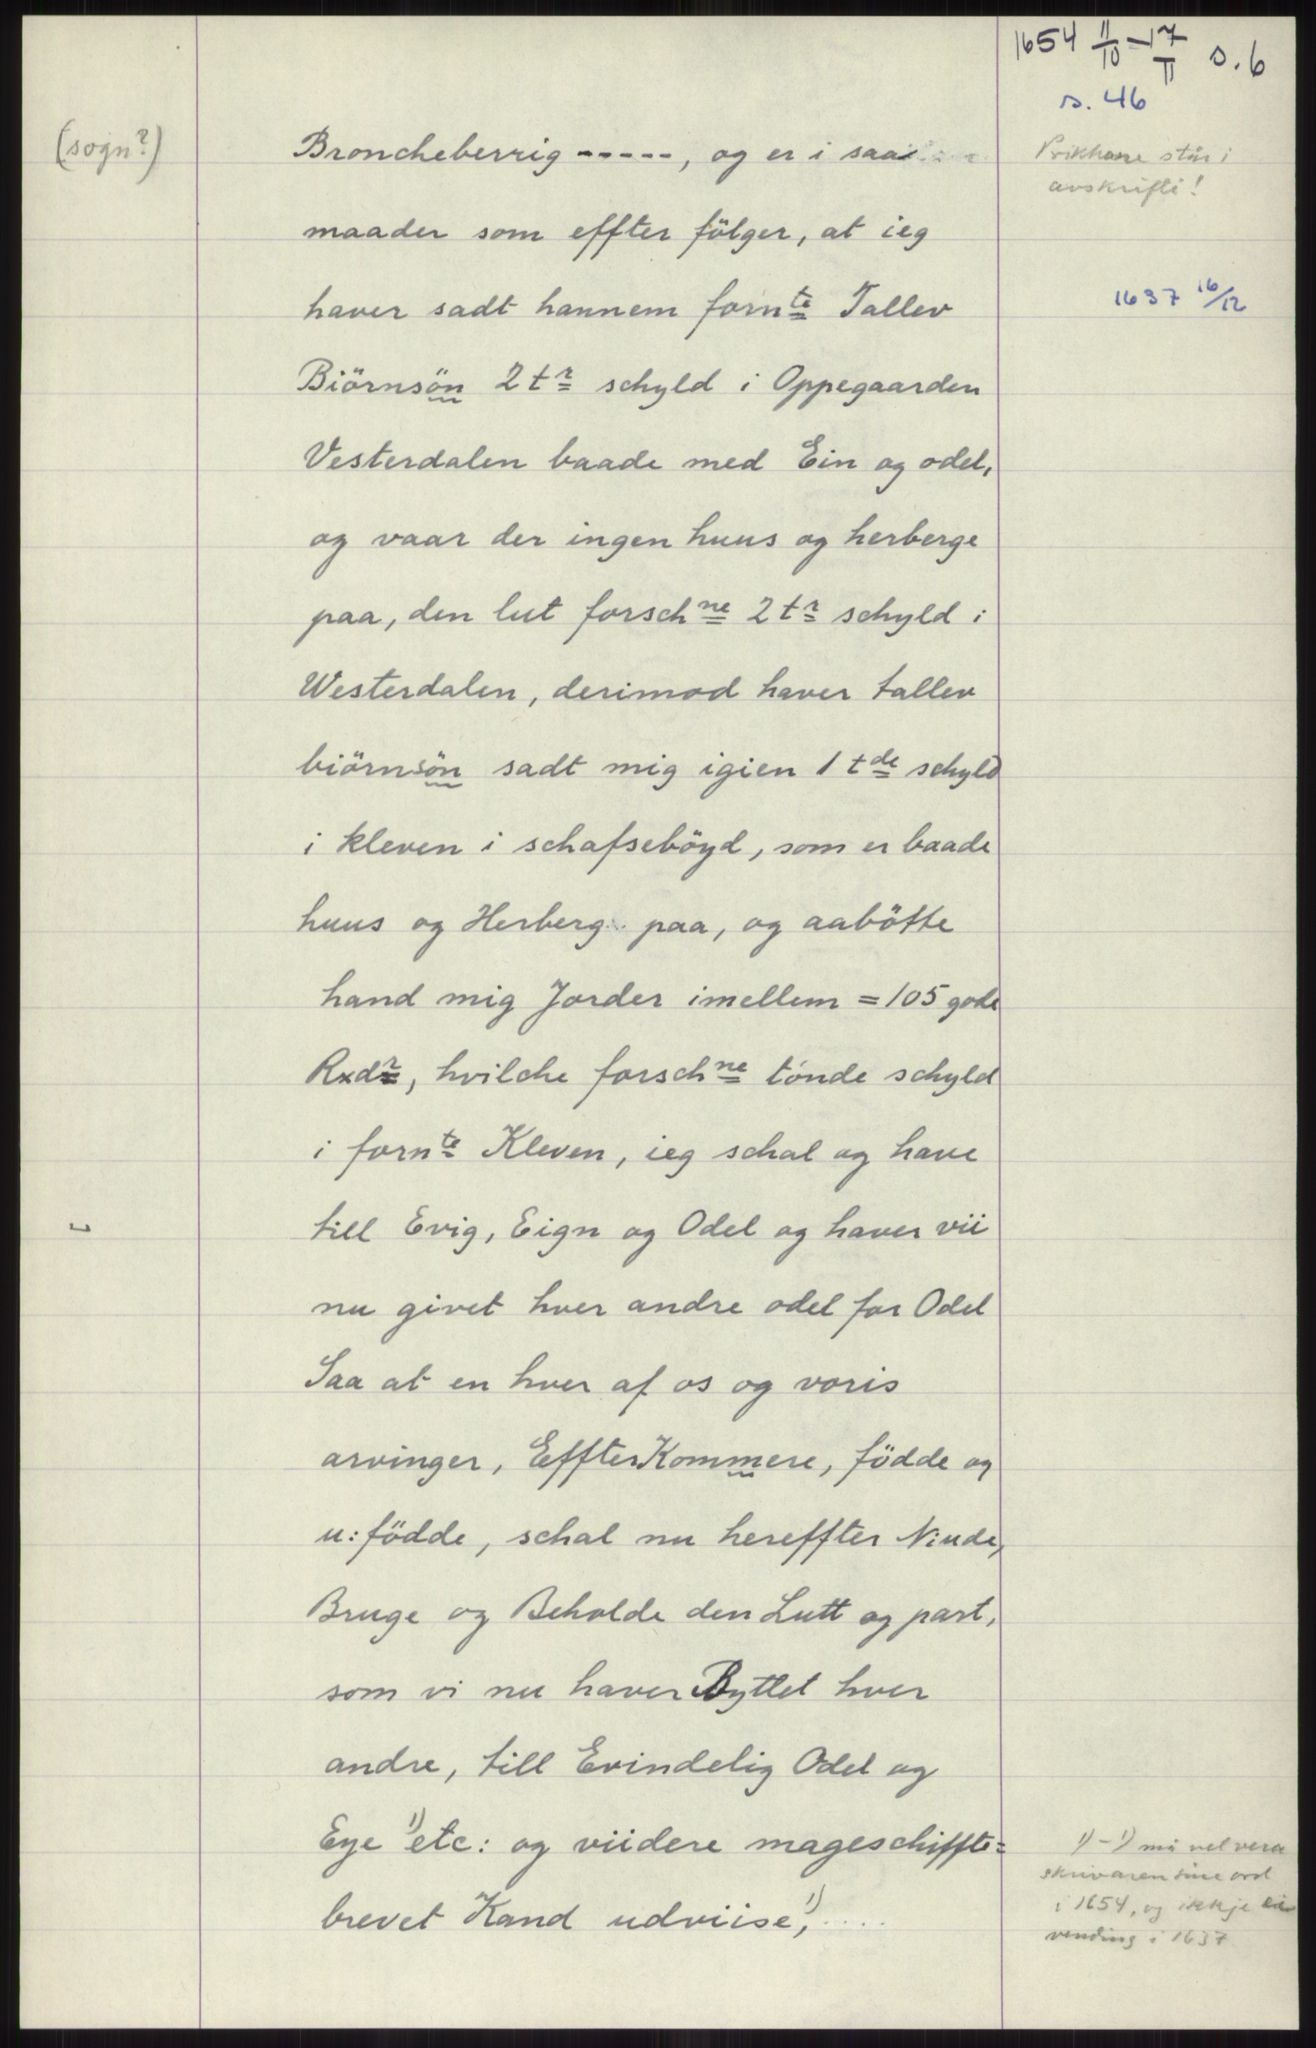 1654 11/10 – 17/11 s. 6
s. 46
(sogn?)
Prikkane står i
avskrifti!
1637 16/12
Broncheberrig -----, og er i saa
maader som effter fölger, at ieg
haver sadt hannem fornte Tallev
Biörnsön 2 tr schyld i Oppegaarden
Vesterdalen baade med Ein og odel,
og vaar der ingen huus og herberge
paa, den lut forschne 2 tr schyld i
Westerdalen, derimod haver tallev
biörnsön sadt mig igien 1 tde schyld
i kleven i schafseböyd, som er baade
huus og Herberg paa, og aabötte
hand mig Jorder imellem = 105 gode
Rxdr, hvilche forschne tönde schyld
i fornte Kleven, ieg schal og have
till Evig, Eign og Odel og haver vii
nu givet hver andre odel for Odel
Saa at en hver af os og voris
arvinger, EffterKommere, födde og
u: födde, schal nu hereffter Niude,
Bruge og Beholde den Lutt og part,
som vi nu haver Byttet hver
andre, till Evindelig Odel og
Eye 1) etc: og viidere mageschiffte=
brevet Kand udviise, 1) ....
1) – 1) må vel vera
skrivaren sine ord
i 1654, og ikkje ei
vending i 1637